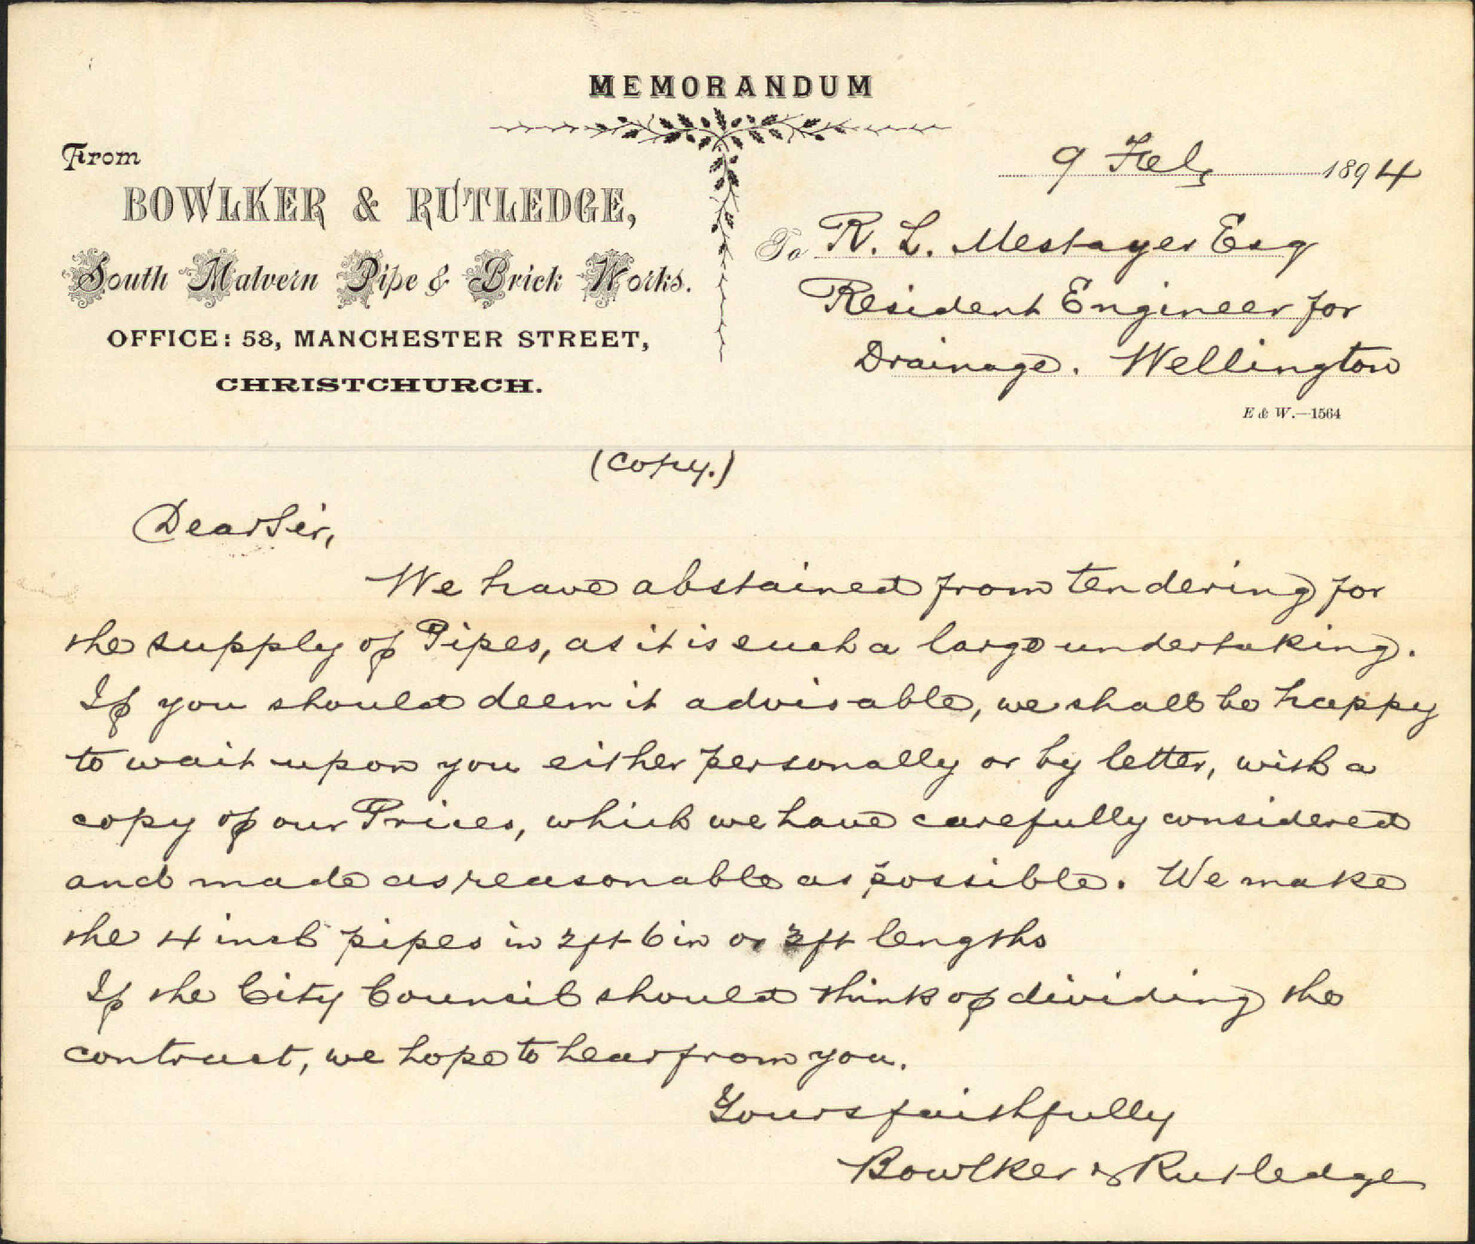 MEMORANDUM
From
BOWLKER & RUTLEDGE,
South Malvern Pipe & Brick Works.
OFFICE: 58, MANCHESTER STREET,
CHRISTCHURCH.
9 Feb, 1894
To R. L. Mestayer Esq
Resident Engineer for
Drainage. Wellington
E & W.—1564
(Copy.)
Dear Sir,
We have abstained from tendering for
the supply of Pipes, as it is such a large undertaking.
If you should deem it advisable, we shall be happy
to wait upon you either personally or by letter, with a
copy of our Prices, which we have carefully considered
and made as reasonable as possible. We make
the 4 inch pipes in 2ft 6in or 2ft lengths
If the City Council should think of dividing the
contract, we hope to hear from you.
Yours faithfully
Bowlker & Rutledge